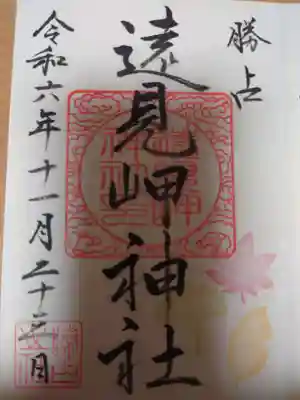 勝占
遠見岬神社
令和六年十一月二十三日